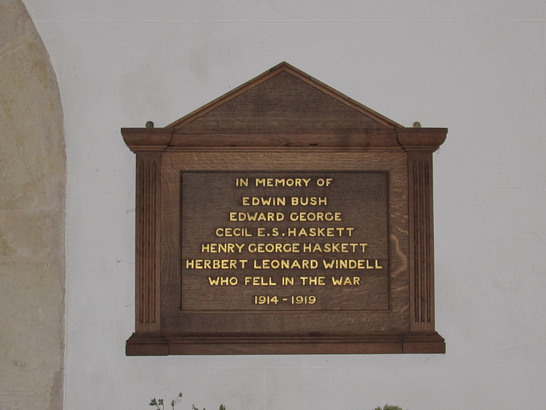 IN MEMORY OF
EDWIN BUSH
EDWARD GEORGE
CECIL E.S. HASKETT
HENRY GEORGE HASKETT
HERBERT LEONARD WINDELL
WHO FELL IN THE WAR
1914 - 1919